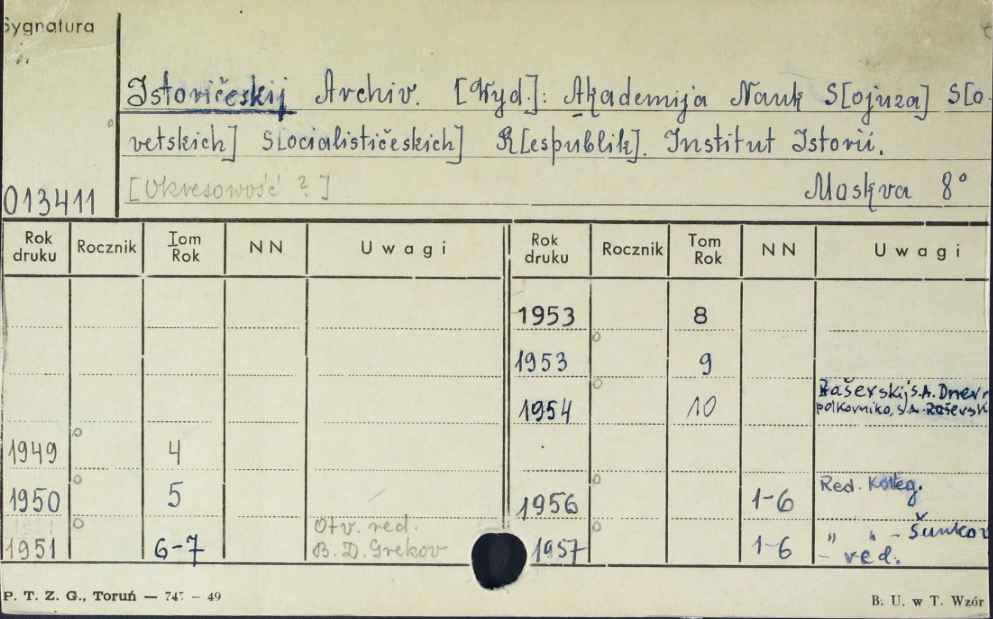 Sygnatura
Istoričeskij Archiv. [Wyd.]: Akademija Nauk S[ojuza] S[o-
vetskich] S[ocialističeskich] R[espublik]. Institut Istorii.
[Okresowość ?] Moskva 8°
013411
Rok druku Rocznik Tom Rok NN Uwagi Rok druku Rocznik Tom Rok NN Uwagi
1953 8
1953 9
1954 10 Raševskij S.A. Dnevn
polkovnika S.A. Raševsk
1949 4
1950 5 1956 1-6 Red. Koleg.
1951 6-7 Otv. red.
B. D. Grekov
1957 1-6 " " - Šunkov
- red.
P. T. Z. G., Toruń — 747 — 49 B. U. w T. Wzór